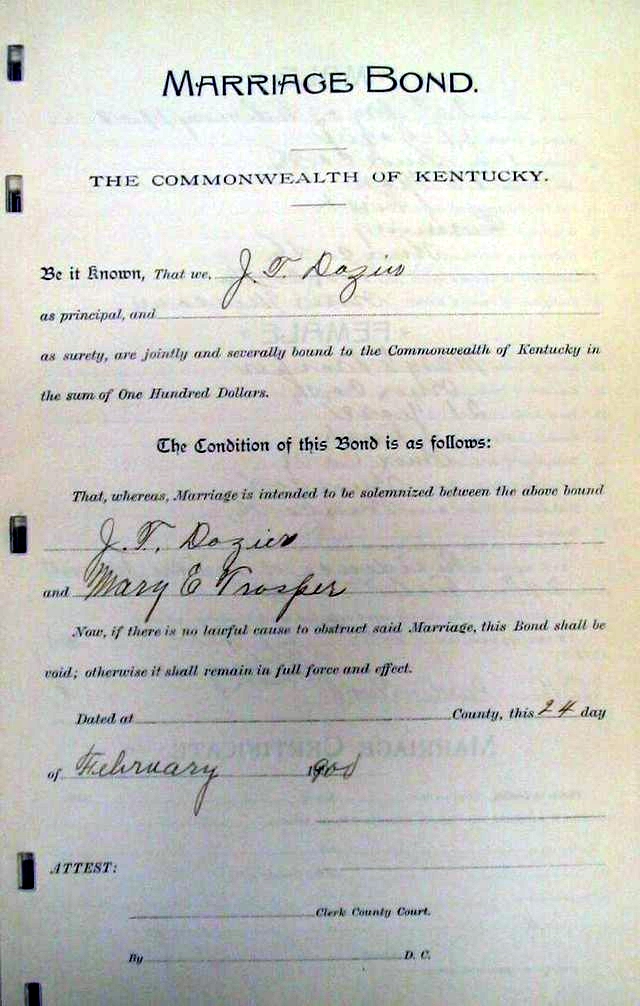 MARRIAGE BOND.
THE COMMONWEALTH OF KENTUCKY.
Be it Known, That we, J. T. Dozier
as principal, and
as surety, are jointly and severally bound to the Commonwealth of Kentucky in
the sum of One Hundred Dollars.
The Condition of this Bond is as follows:
That, whereas, Marriage is intended to be solemnized between the above bound
J. T. Dozier
and Mary E Trosper
Now, if there is no lawful cause to obstruct said Marriage, this Bond shall be
void; otherwise it shall remain in full force and effect.
Dated at County, this 24 day
of February 1900
ATTEST:
Clerk County Court.
By D. C.